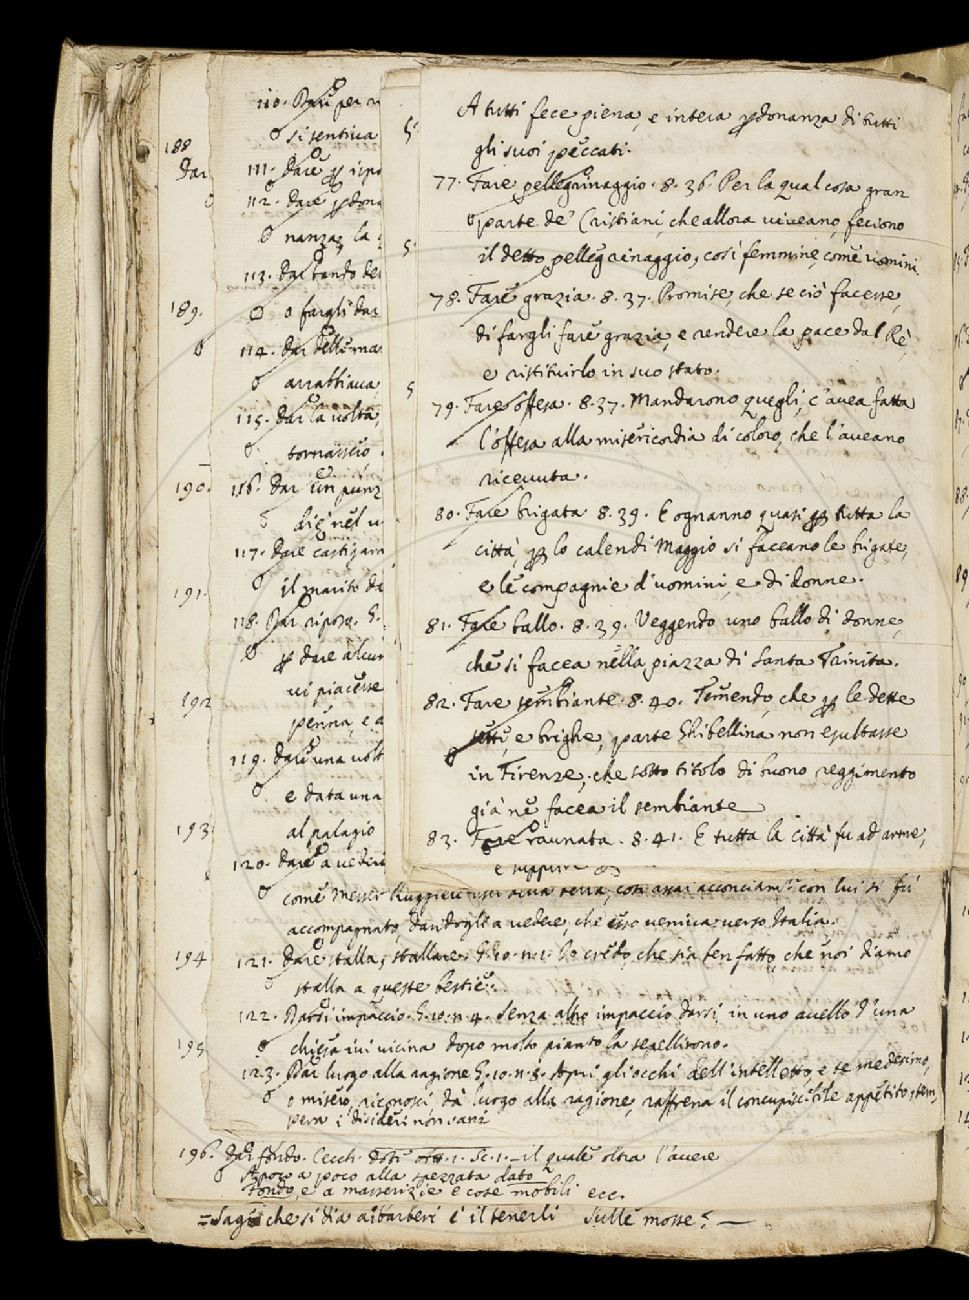 A tutti fece piena, e intera perdonanza di tutti
gli suoi peccati.
77. Fare pellegrinaggio. 8. 36. Per la qual cosa gran
parte de' Cristiani, che allora viveano, feciono
il detto pellegrinaggio, così femmine, come uomini.
78. Fare grazia. 8. 37. Promise, che se ciò facesse,
di fargli fare grazia, e rendere la pace dal Rè,
e ristituirlo in suo stato.
79. Fare offesa. 8. 37. Mandarono quegli, c'avea fatta
l'offesa alla misericordia di coloro, che l'aveano
ricevuta.
80. Fare brigata 8. 39. E ognanno quasi per tutta la
città, per lo calendi Maggio si faceano le brigate,
e le compagnie d'uomini, e di donne.
81. Fare ballo. 8. 39. Veggendo uno ballo di donne,
che si facea nella piazza di Santa Trinita.
82. Fare sembiante. 8. 40. Temendo, che per le dette
sette, e brighe, parte Ghibellina non esultasse
in Firenze, che sotto titolo di buono reggimento
già ne facea il sembiante
83. Fare raunata. 8. 41. E tutta la città fu ad arme,
188
Dar
189.
190.
191.
192
193
194
195
110. Dare per
si sentiva
111. Dare per
112. Dare
nanza, la
113. Dar bando
o fargli dar
114. Dar delle
arrabbiava
115. Dar la volta,
tornassi
116. Dar un
die nel
117. Dare
il marito
118. Dar riposo. G.
per dare alcun
vi piacesse
penna, e
119. Dare una volta
e data una
al palagio
120. Dare a vedere
come Messer Ruggieri con lui si fu
accompagnato, dandogli a vedere, che esso veniva verso Italia.
121. Dare stalla, stallare G. 10. n. 1. Io credo, che sia ben fatto, che noi diamo
stalla a queste bestie.
122. Darsi impaccio. G. 10. n. 4. Senza altro impaccio darsi, in uno avello d'una
chiesa ivi vicina dopo molto pianto la sepellirono.
123. Dar luogo alla ragione G. 10. n. 8. Apri gli occhi dell'intelletto, e te medesimo,
o misero, riconosci, dà luogo alla ragione, raffrena il concupiscibile appetito, tem,
pera i disideri non sani
196. Dar fondo. Cecch. Dot. att. 1. Sc. 1. — il quale oltra l'avere
a poco a poco alla spezzata dato
Fondo, e a masserizie e cose mobili ecc.
= Saggi che si dia a i barberi è il tenerli sulle mosse? —